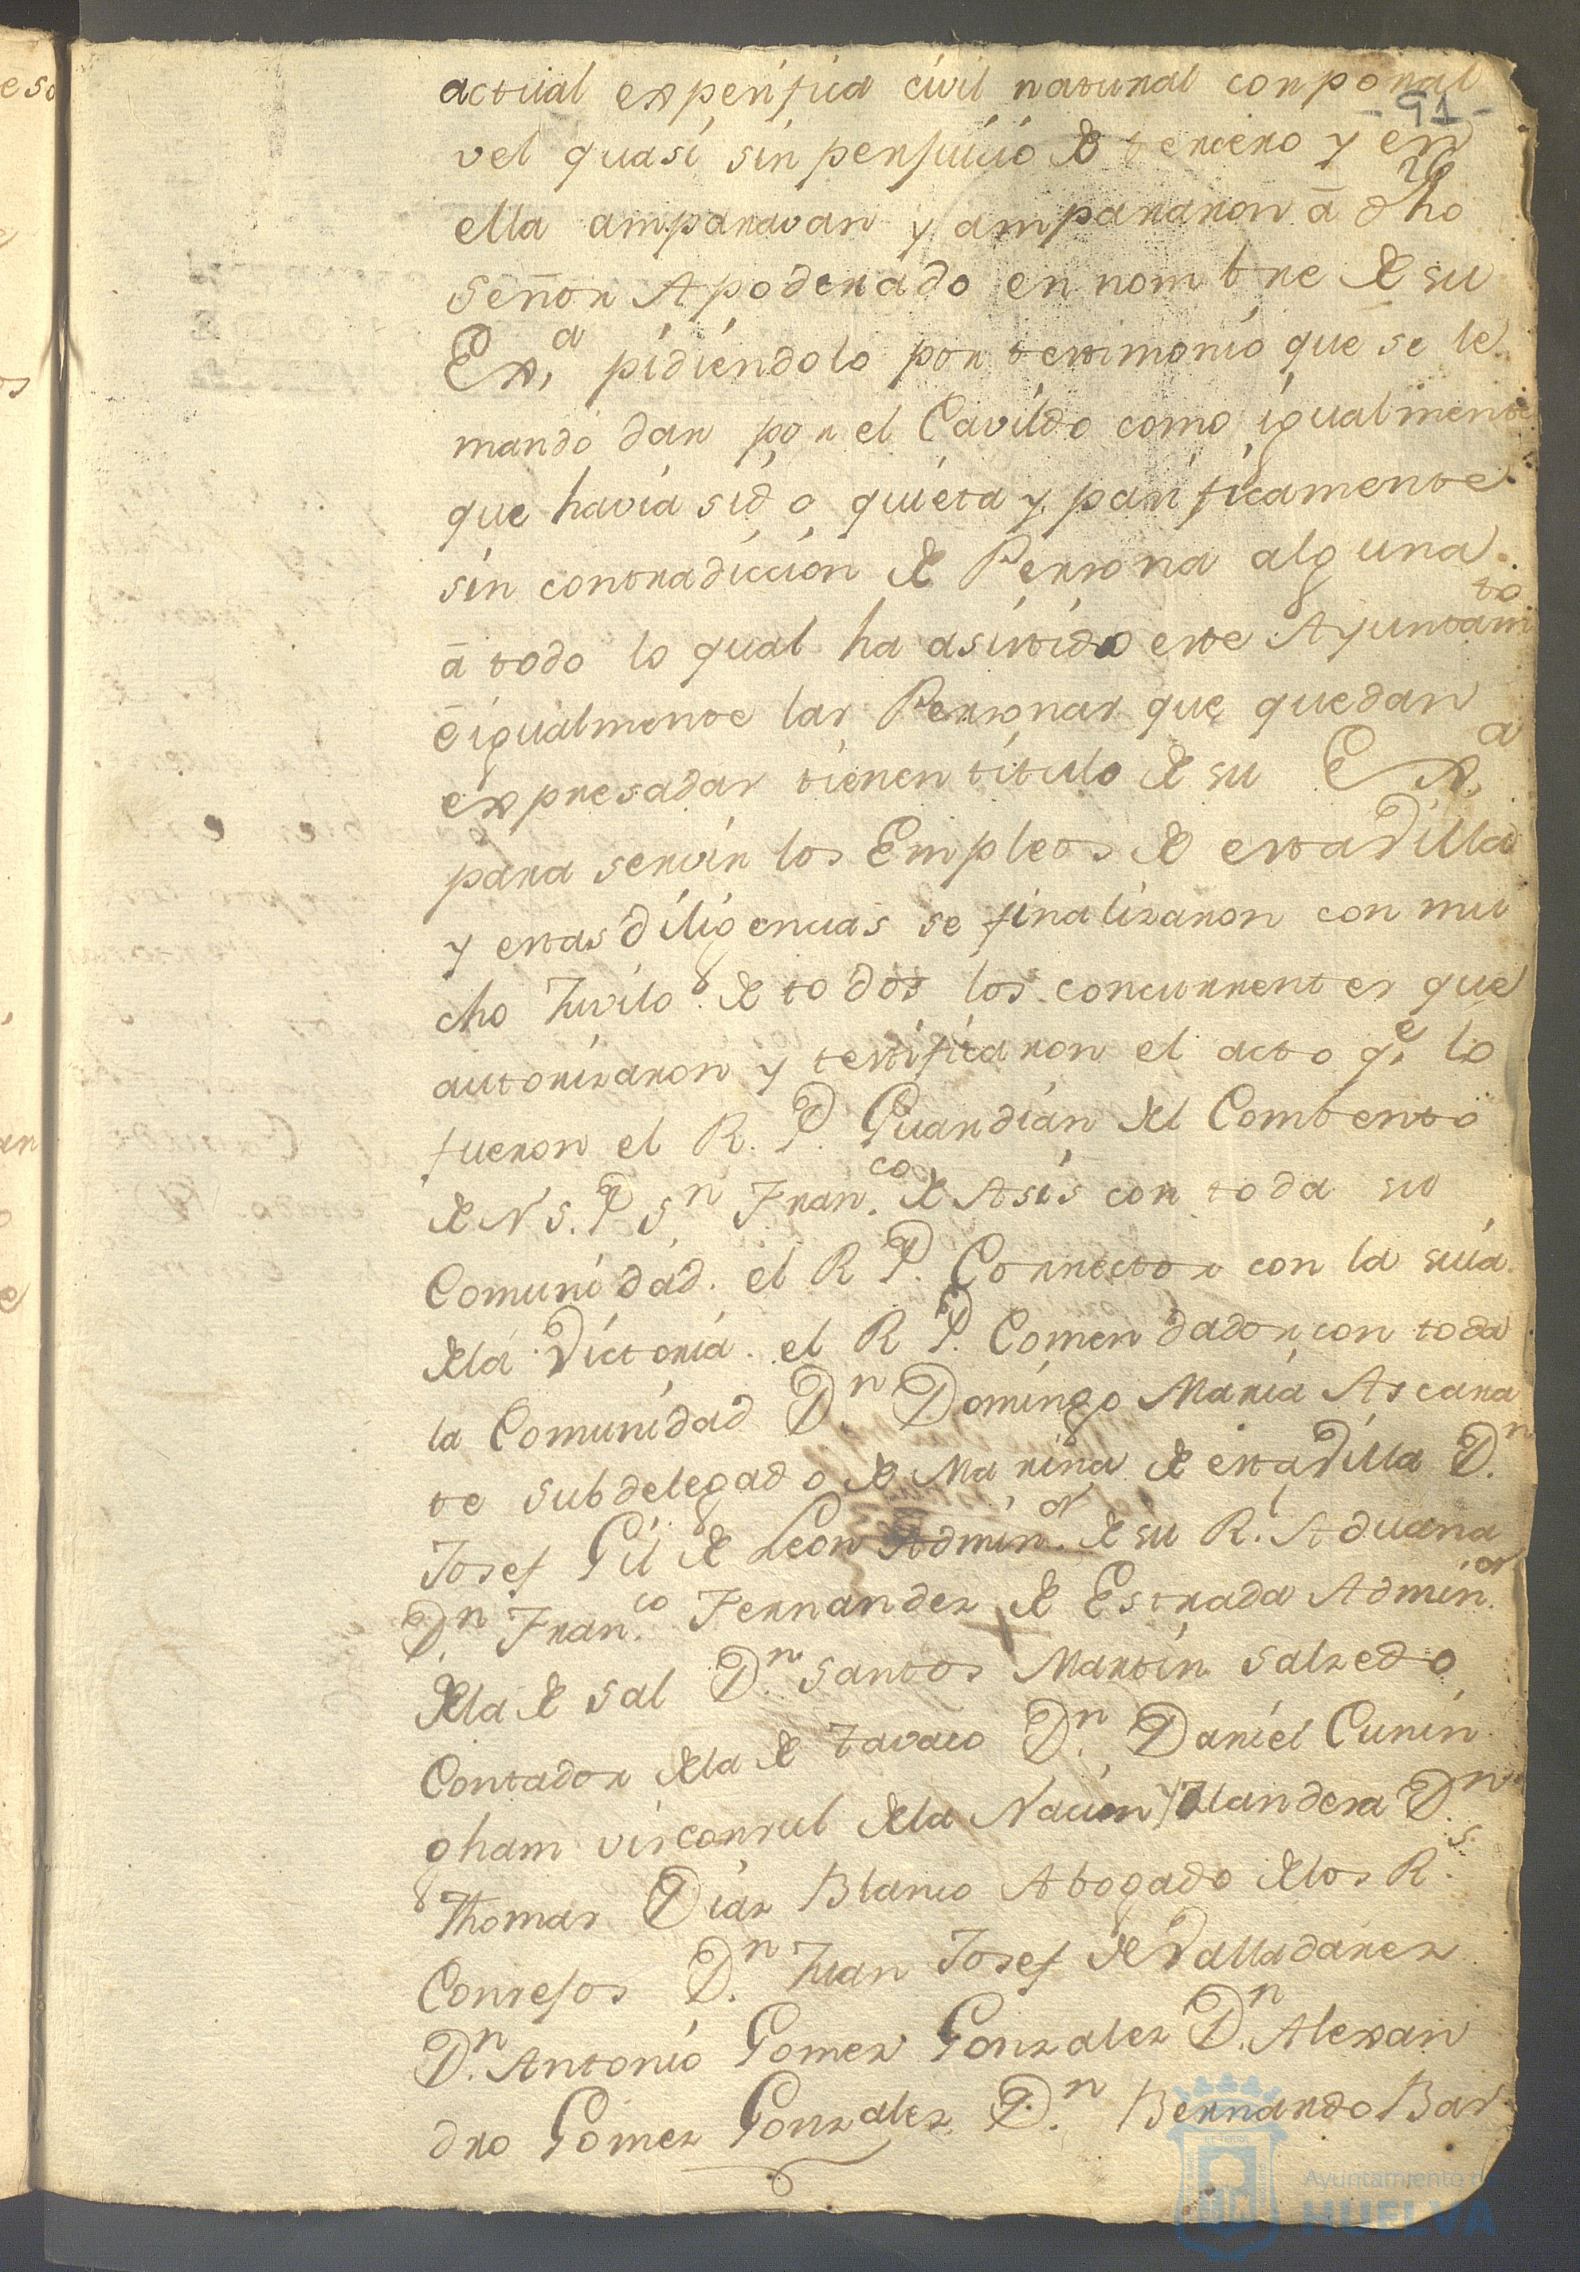 actual expecifica civil natural corporal
- 91 -
vel quasi sin perjuicio de tercero y en
ella amparavan y ampararon â dho
Señor Apoderado en nombre de su
Ex.ª pidiendolo por testimonio que se le
mando dar por el Cavildo como igualmente
que havia sido quieta y pacificamente
sin contradiccion de Persona alguna.
â todo lo qual ha asistido este Ayuntamto
ê igualmente las Personas que quedan
expresadas tienen titulo de su Ex.ª
para servir los Empleos de esta Villa
y estas diligencias se finalizaron con mu
cho Juvilo de todos los concurrentes que
autorizaron y testificaron el acto q.e lo
fueron el R. P. Guardian del Combento
de N S. P Sn Fran.co de Asis con toda su
Comunidad. el R P. Corrector con la suia.
dela Victoria. el R P. Comendador con toda
la Comunidad D.n Domingo Maria Ascara
te subdelegado de Marina de esta Villa D.n
Josef Gil de Leon Admin.or de su R.l Aduana
D.n Fran.co Fernandez de Estrada Admin.or
dela de sal D.n Santos Martin Salzedo
Contador dela de tavaco D.n Daniel Cunin
gham visconsul dela Nacion Yrlandesa D.n
Thomas Diaz Blanco Abogado delos R.s
Consejos D.n Juan Josef de Valladares
D.n Antonio Gomez Gonzalez D.n Alexan
dro Gomez Gonzalez D.n Bernardo Bar
Ayuntamiento de
HUELVA